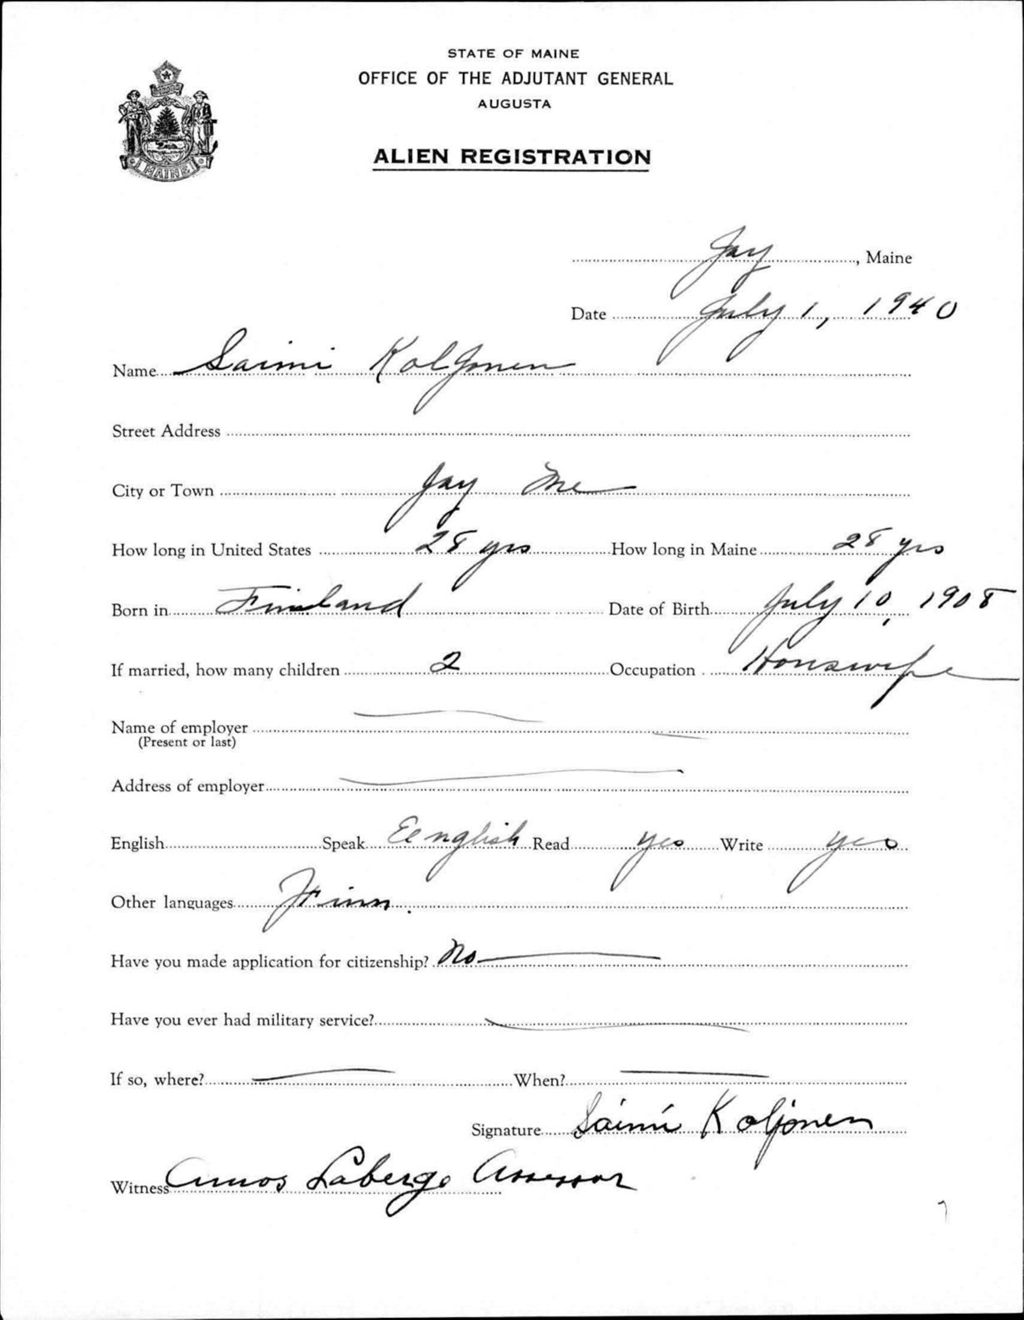 STATE OF MAINE
OFFICE OF THE ADJUTANT GENERAL
AUGUSTA
ALIEN REGISTRATION
MAINE
Jay, Maine
Date July 1, 1940
Name Saimi Koljonen
Street Address
City or Town Jay Me
How long in United States 28 yrs How long in Maine 28 yrs
Born in Finland Date of Birth July 10, 1908
If married, how many children 2 Occupation Houswife
Name of employer
(Present or last)
Address of employer
English Speak Eenglish Read yes Write yes
Other languages Finn.
Have you made application for citizenship? No
Have you ever had military service?
If so, where? When?
Signature Saimi Koljonen
Witness Amos Laberge Assessor